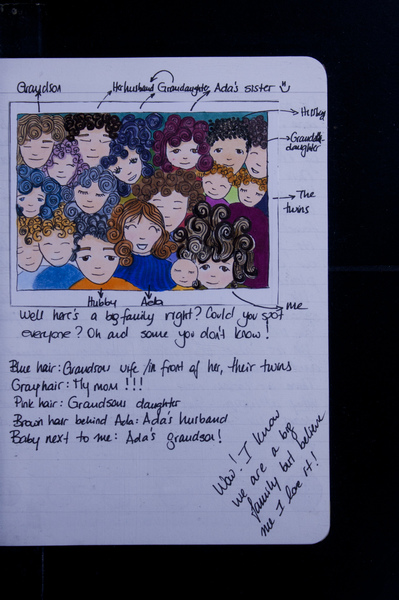 Grandson Her husband Grandaughter Ada's sister
Hubby
Grandda
daughter
The
twins
Hubby Ada me
Well her's a big family right? Could you spot
everyone? Oh and some you don't know!
Blue hair: Grandson wife /in front of her, their twins
Gray hair: My mom !!!
Pink hair: Grandsons daughter
Brown hair behind Ada: Ada's husband
Baby next to me: Ada's grandson!
Wow! I know
we are a big
family but believe
me I love it!!